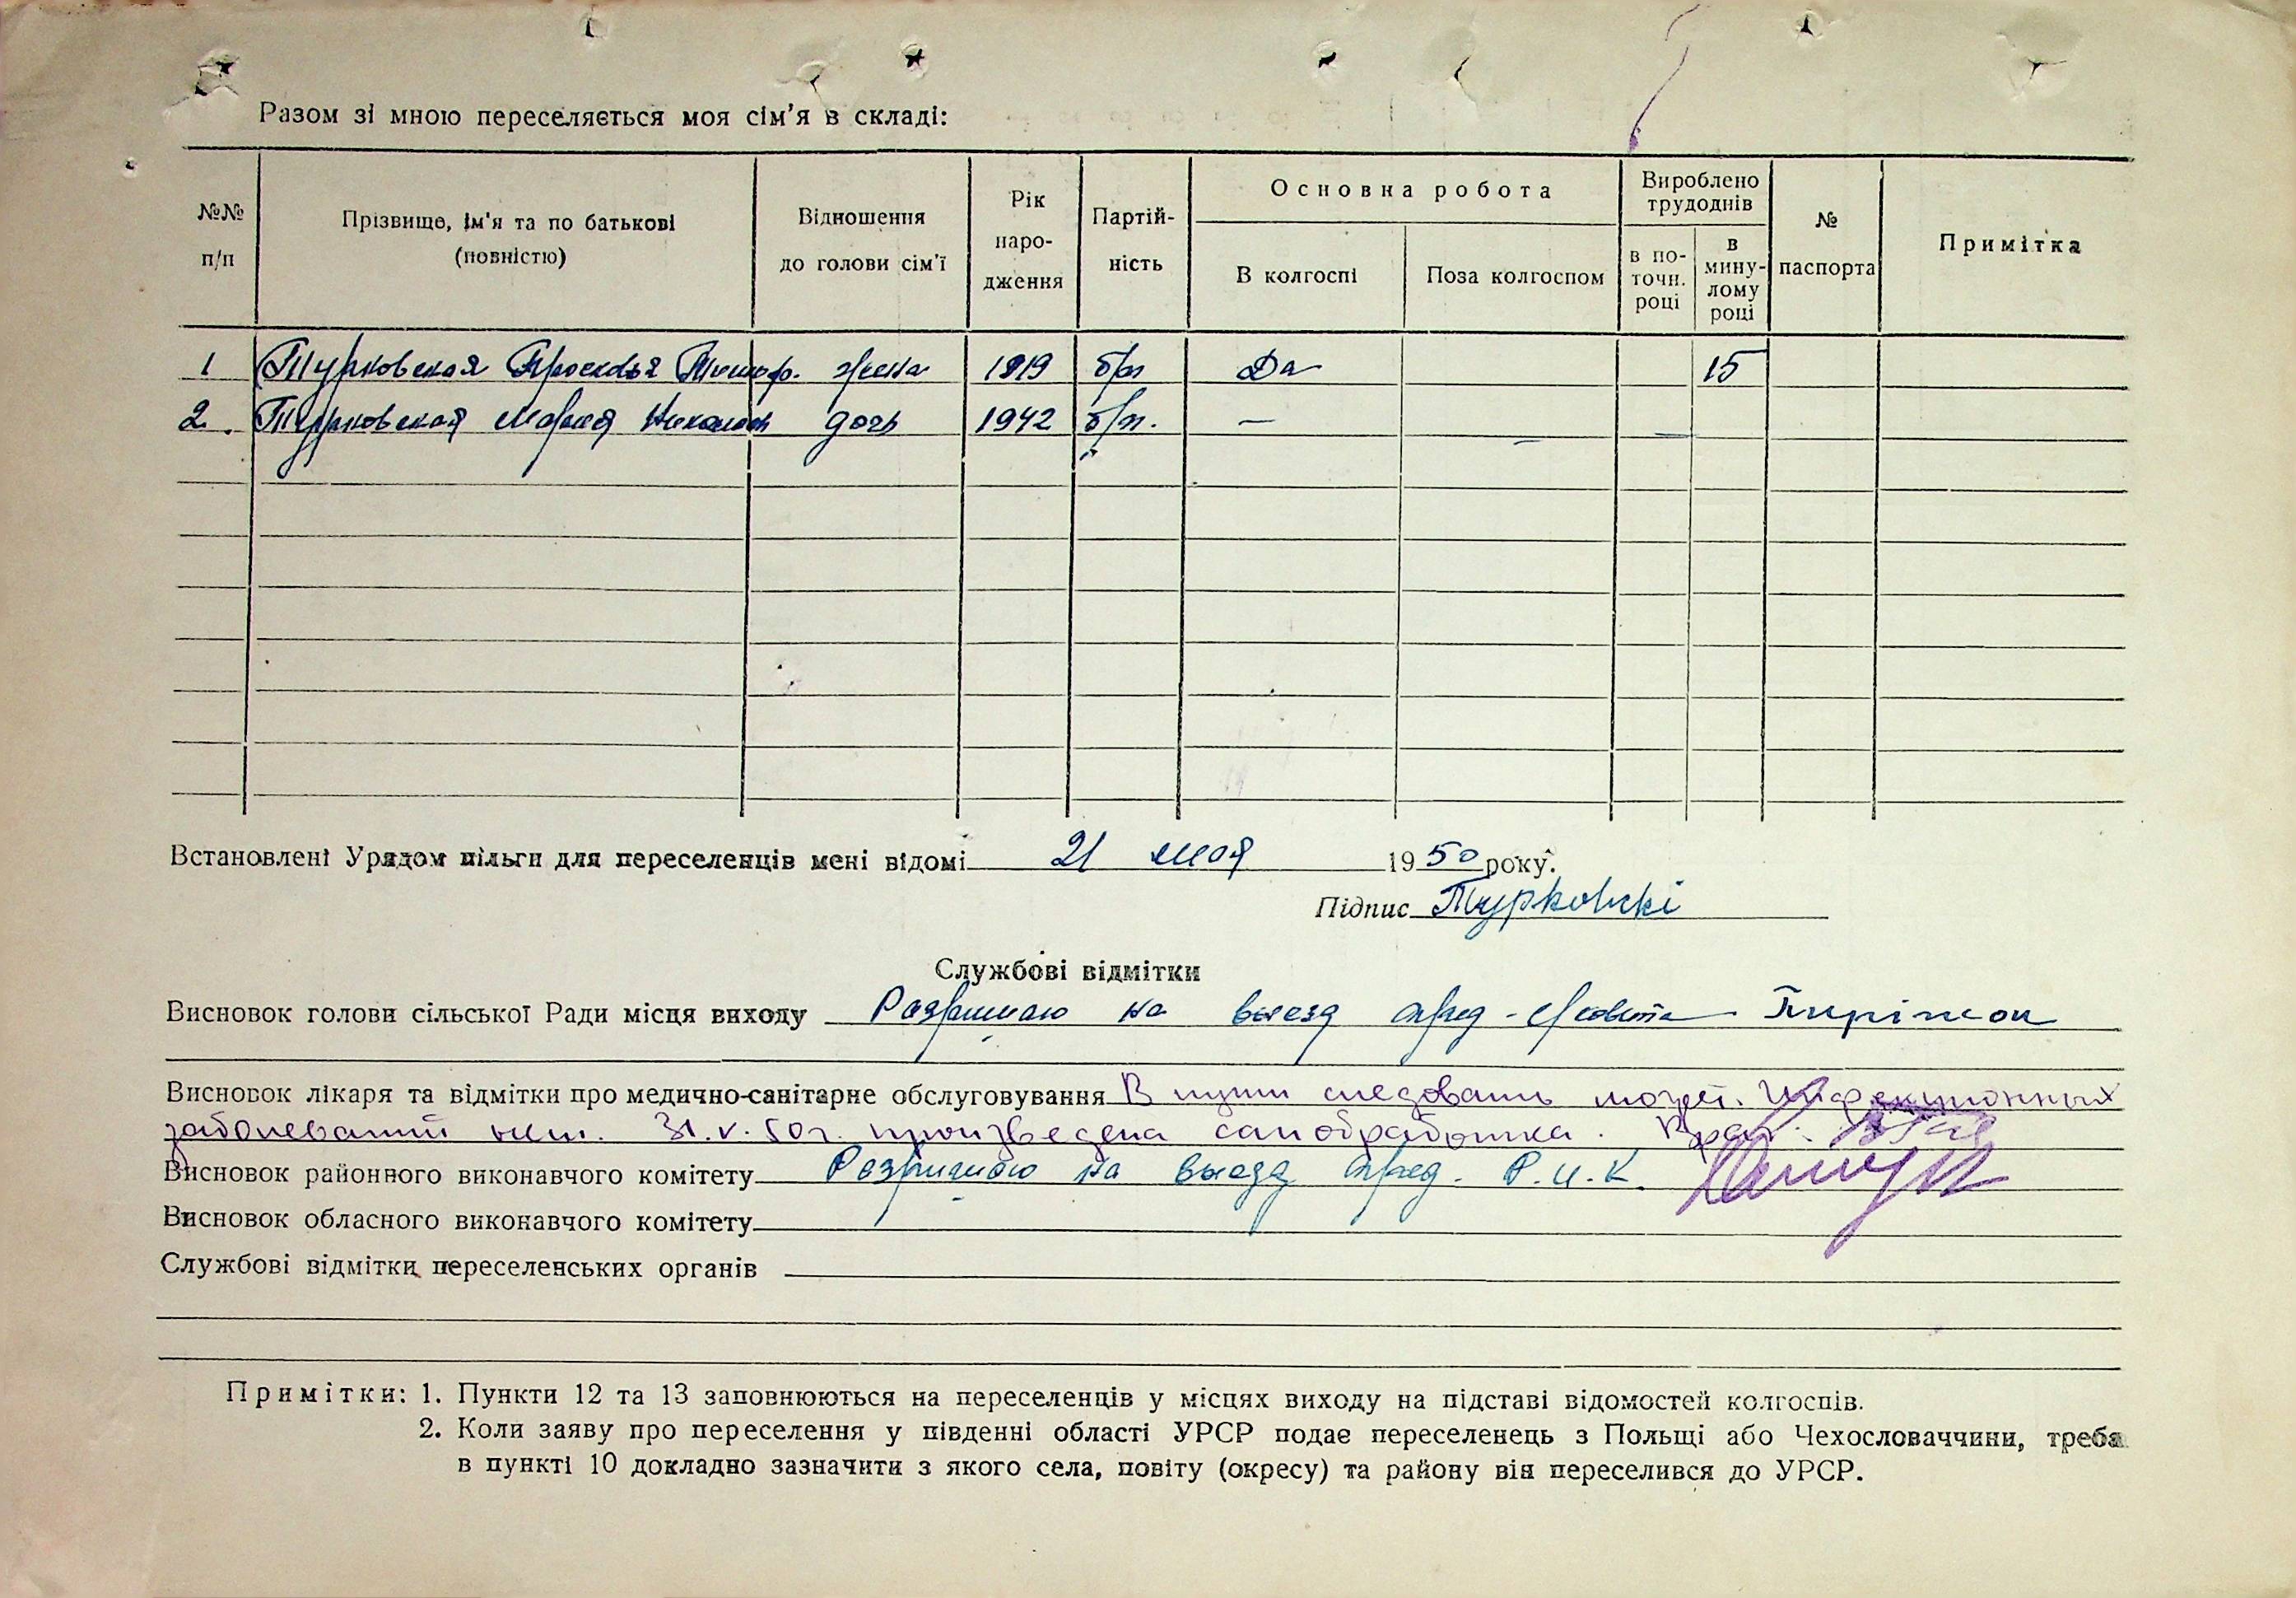 Разом зі мною переселяється моя сім'я в складі:
№№ п/п
Прізвище, ім'я та по батькові (повністю)
Відношення до голови сім'ї
Рік наро-дження
Партій-ність
Основна робота
В колгоспі
Поза колгоспом
Вироблено трудоднів
в по-точн. році
в мину-лому році
№ паспорта
Примітка
1 Турковская Просковья Тимоф. жена 1919 б/п Да 15
2. Турковская Мария Николаев дочь 1942 б/п. —
Встановлені Урядом пільги для переселенців мені відомі 21 мая 1950 року.
Підпис Турковскі
Службові відмітки
Висновок голови сільської Ради місця виходу Разришаю на выезд пред-
Висновок лікаря та відмітки про медично-санітарне обслуговування В пути следовать может. Инфекционных
заболеваний нет. 31.V.50г. произведена санобработка. Врач:
Висновок районного виконавчого комітету Разришаю на выезд пред. Р.И.К.
Висновок обласного виконавчого комітету
Службові відмітки переселенських органів
Примітки: 1. Пункти 12 та 13 заповнюються на переселенців у місцях виходу на підставі відомостей колгоспів.
2. Коли заяву про переселення у південні області УРСР подає переселенець з Польщі або Чехословаччини, треба
в пункті 10 докладно зазначити з якого села, повіту (округу) та району він переселився до УРСР.